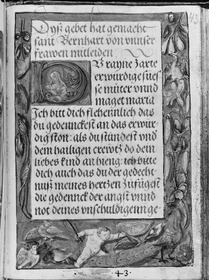 Dyß gebet hat gemacht
sant Bernhart von unser
frawen mitleiden
O rayne zarte
erwurdige sues
se můter unnd
maget maria
Ich bitt dich flehenlich das
du gedenckest an das erwur
digston: als du stündest und
dem hailigen creütz do dein
liebes kind an hieng: ich bitte
dich auch das du der gedecht
nuß meines hertzen zufügest
die gedenck der angst unnd
not deines unschuldigen
43